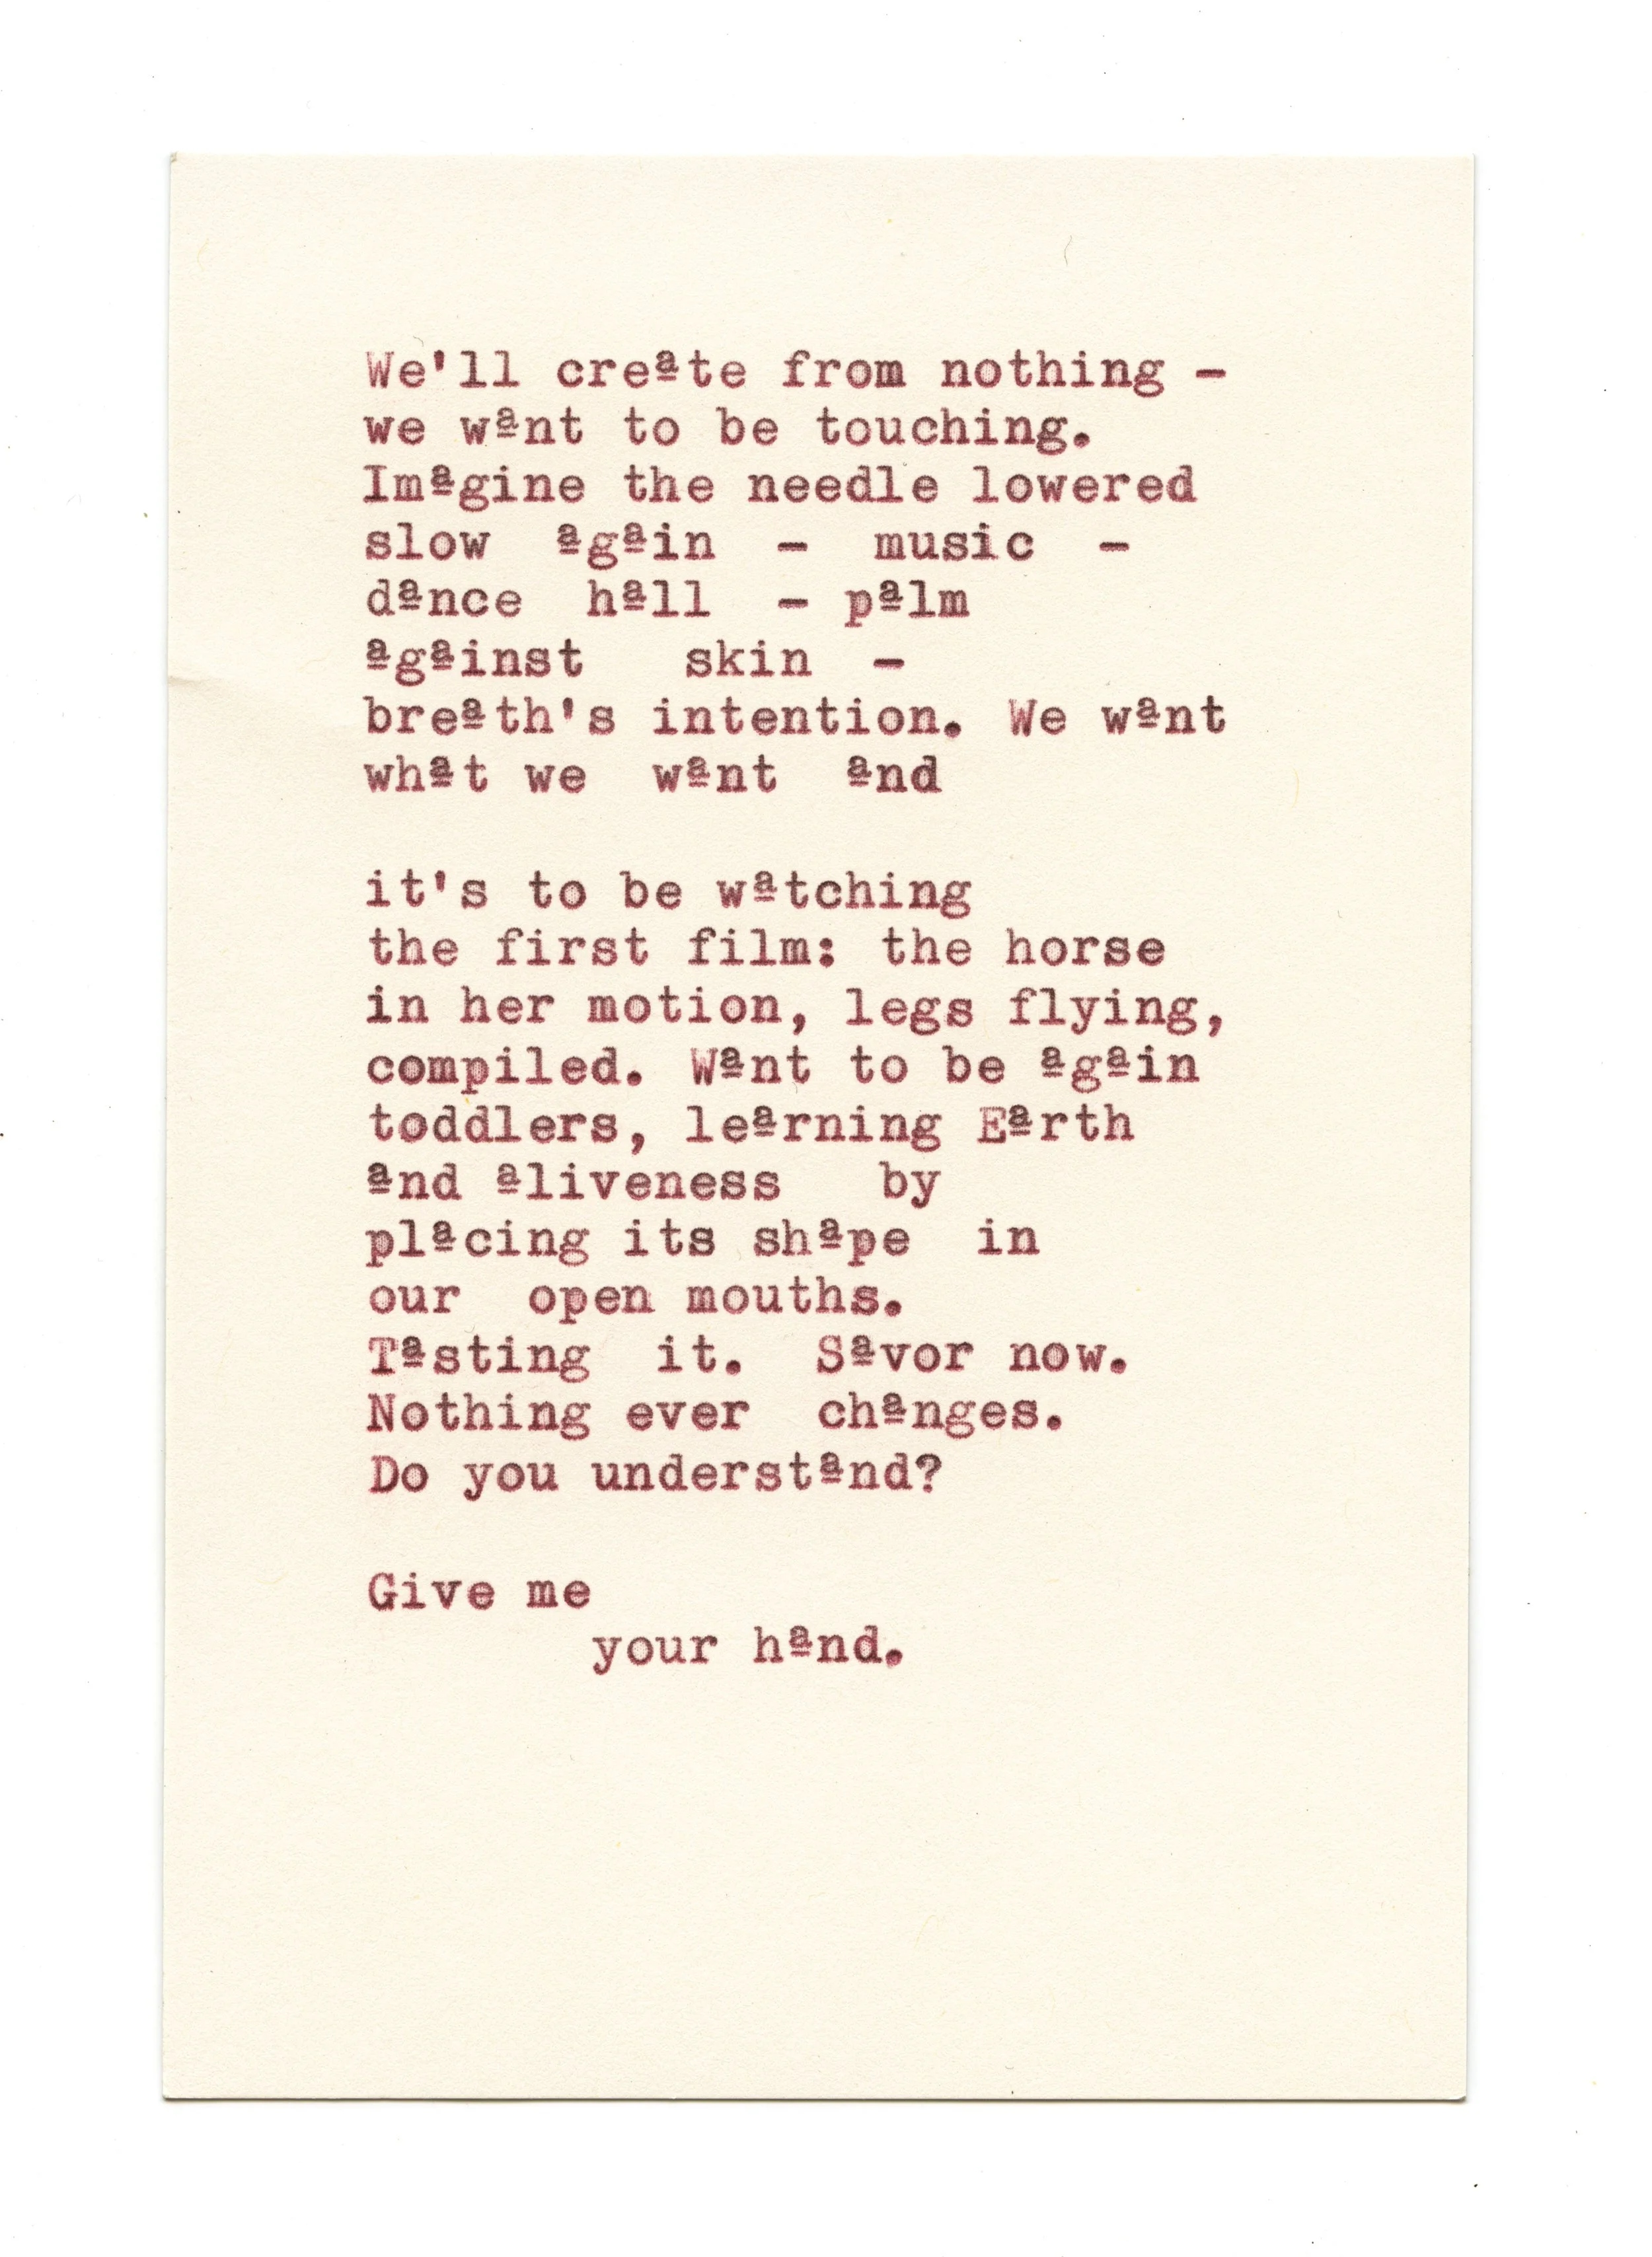 We'll creªte from nothing -
we wªnt to be touching.
Imªgine the needle lowered
slow ªgªin - music -
dªnce hªll - pªlm
ªgªinst skin -
breªth's intention. We wªnt
whªt we wªnt ªnd
it's to be wªtching
the first film: the horse
in her motion, legs flying,
compiled. Wªnt to be ªgªin
toddlers, leªrning Eªrth
ªnd ªliveness by
plªcing its shªpe in
our open mouths.
Tªsting it. Sªvor now.
Nothing ever chªnges.
Do you understªnd?
Give me
your hªnd.